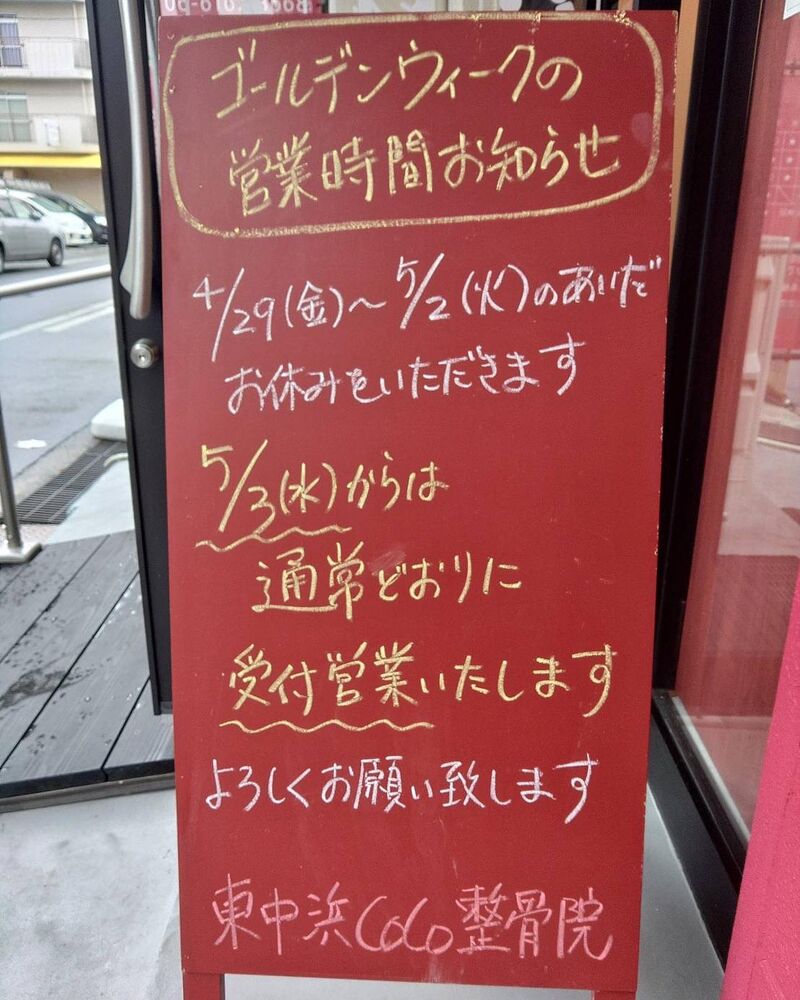 ゴールデンウィークの
営業時間お知らせ
4/29(金)〜5/2(火)のあいだ
お休みをいただきます
5/3(水)からは
通常どおりに
受付営業いたします
よろしくお願い致します
東中浜CoCo整骨院